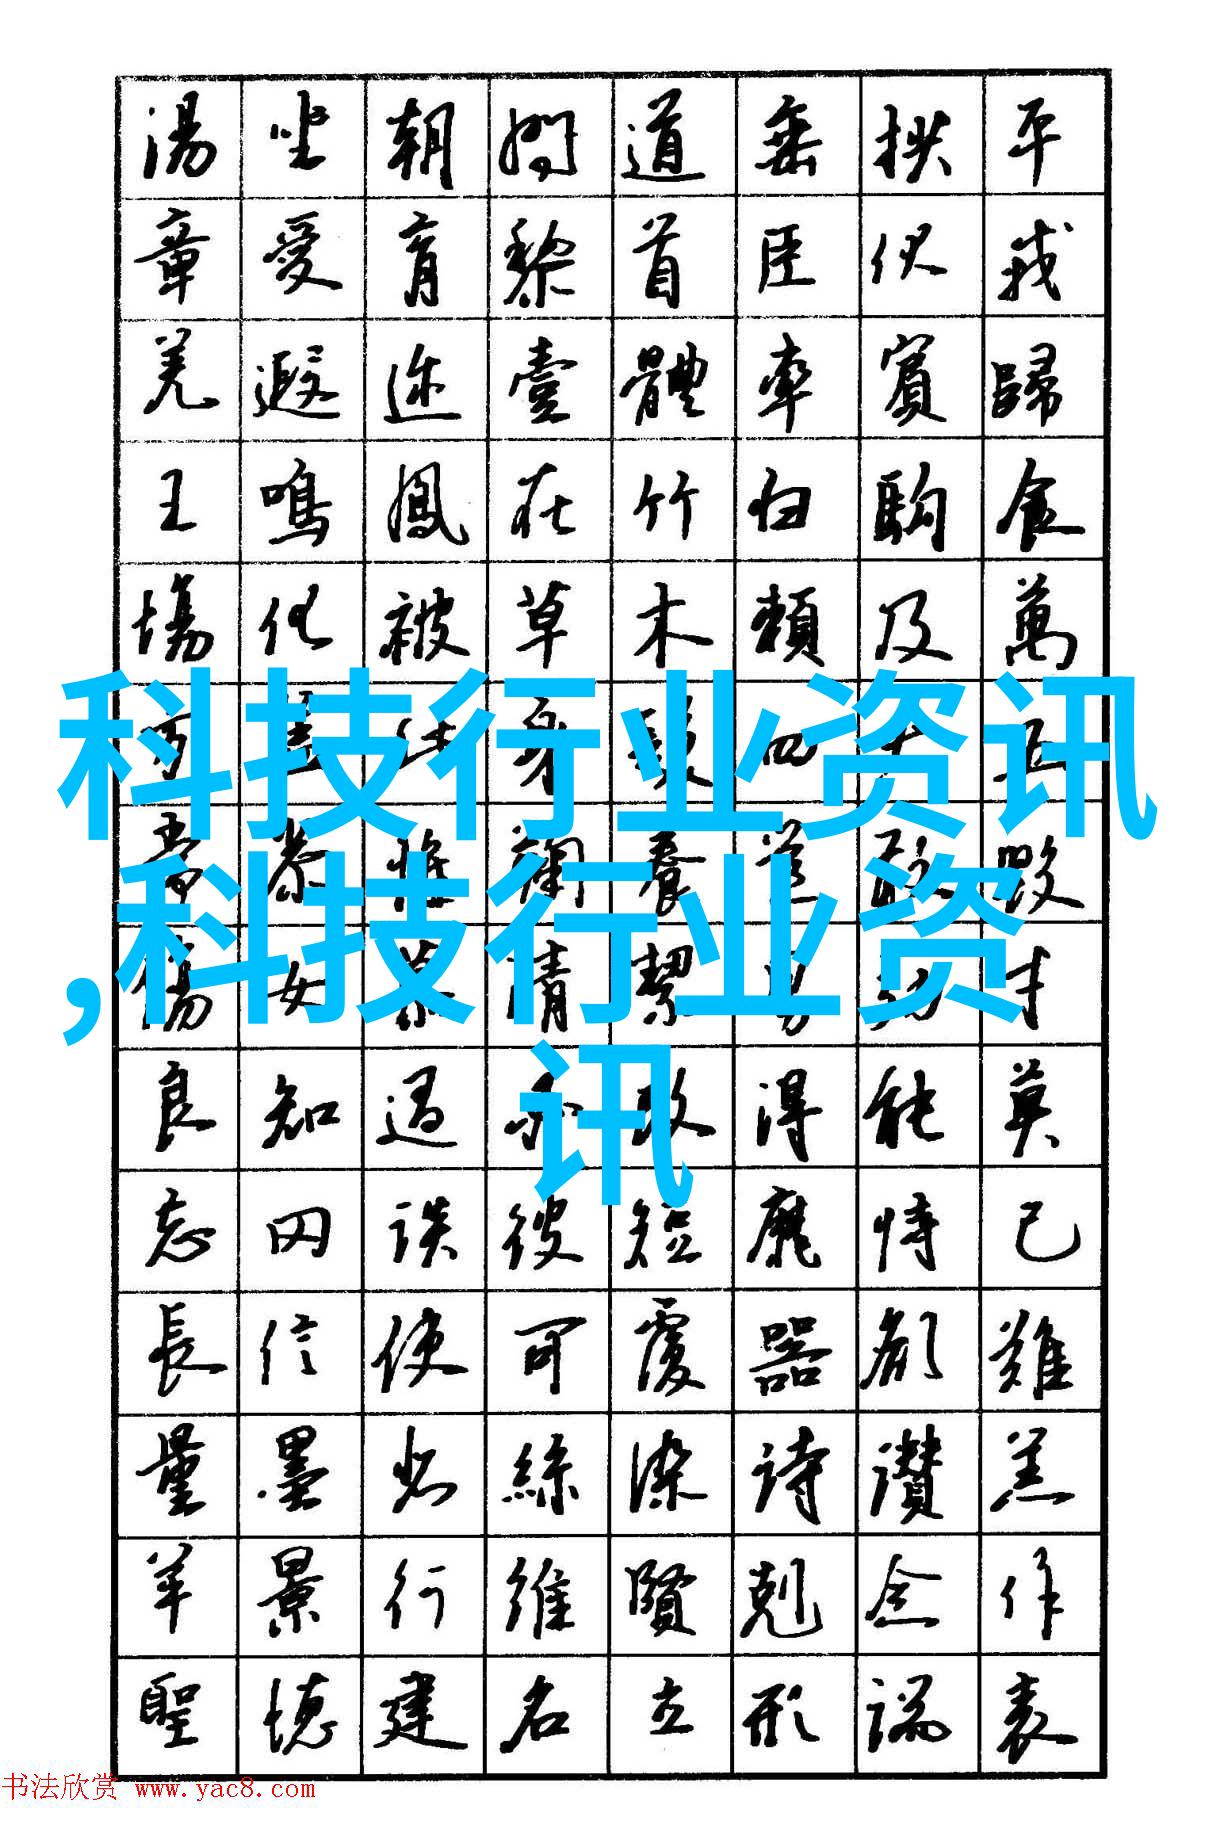 湯坐朝問道垂拱平
章愛育黎首臣伏戎
羌遐迩壹體率賓歸
王鳴鳳在竹白駒食
場化被草木賴及萬
科技行业资讯
身髮四大五
恭惟鞠養豈敢毀
,科技行业资
傷女慕清絜男效才
讯
良知過必改得能莫
忘罔談彼短靡恃己
長信使可覆器欲難
量墨悲絲染詩讚羔
羊景行維賢剋念作
聖德建名立形端表
书法欣赏 www.yac8.com